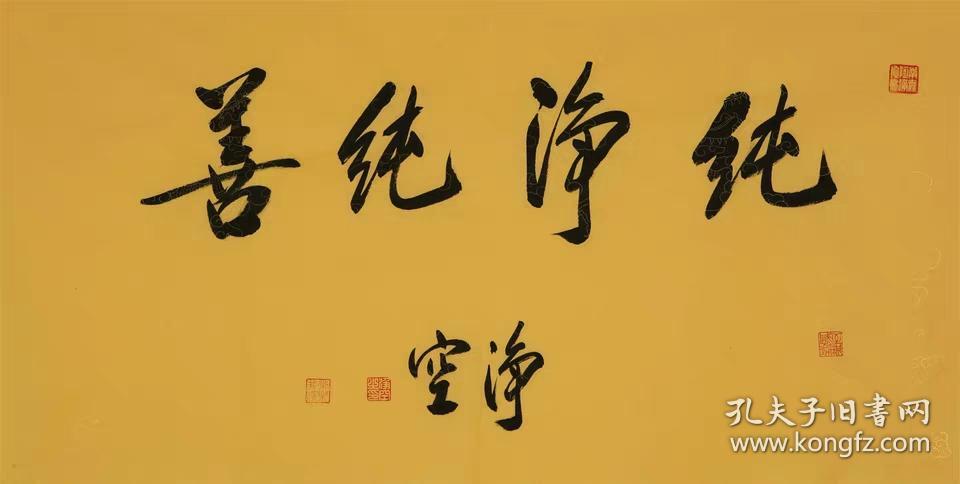 纯净纯善
净空
孔夫子旧书网
www.kongfz.com